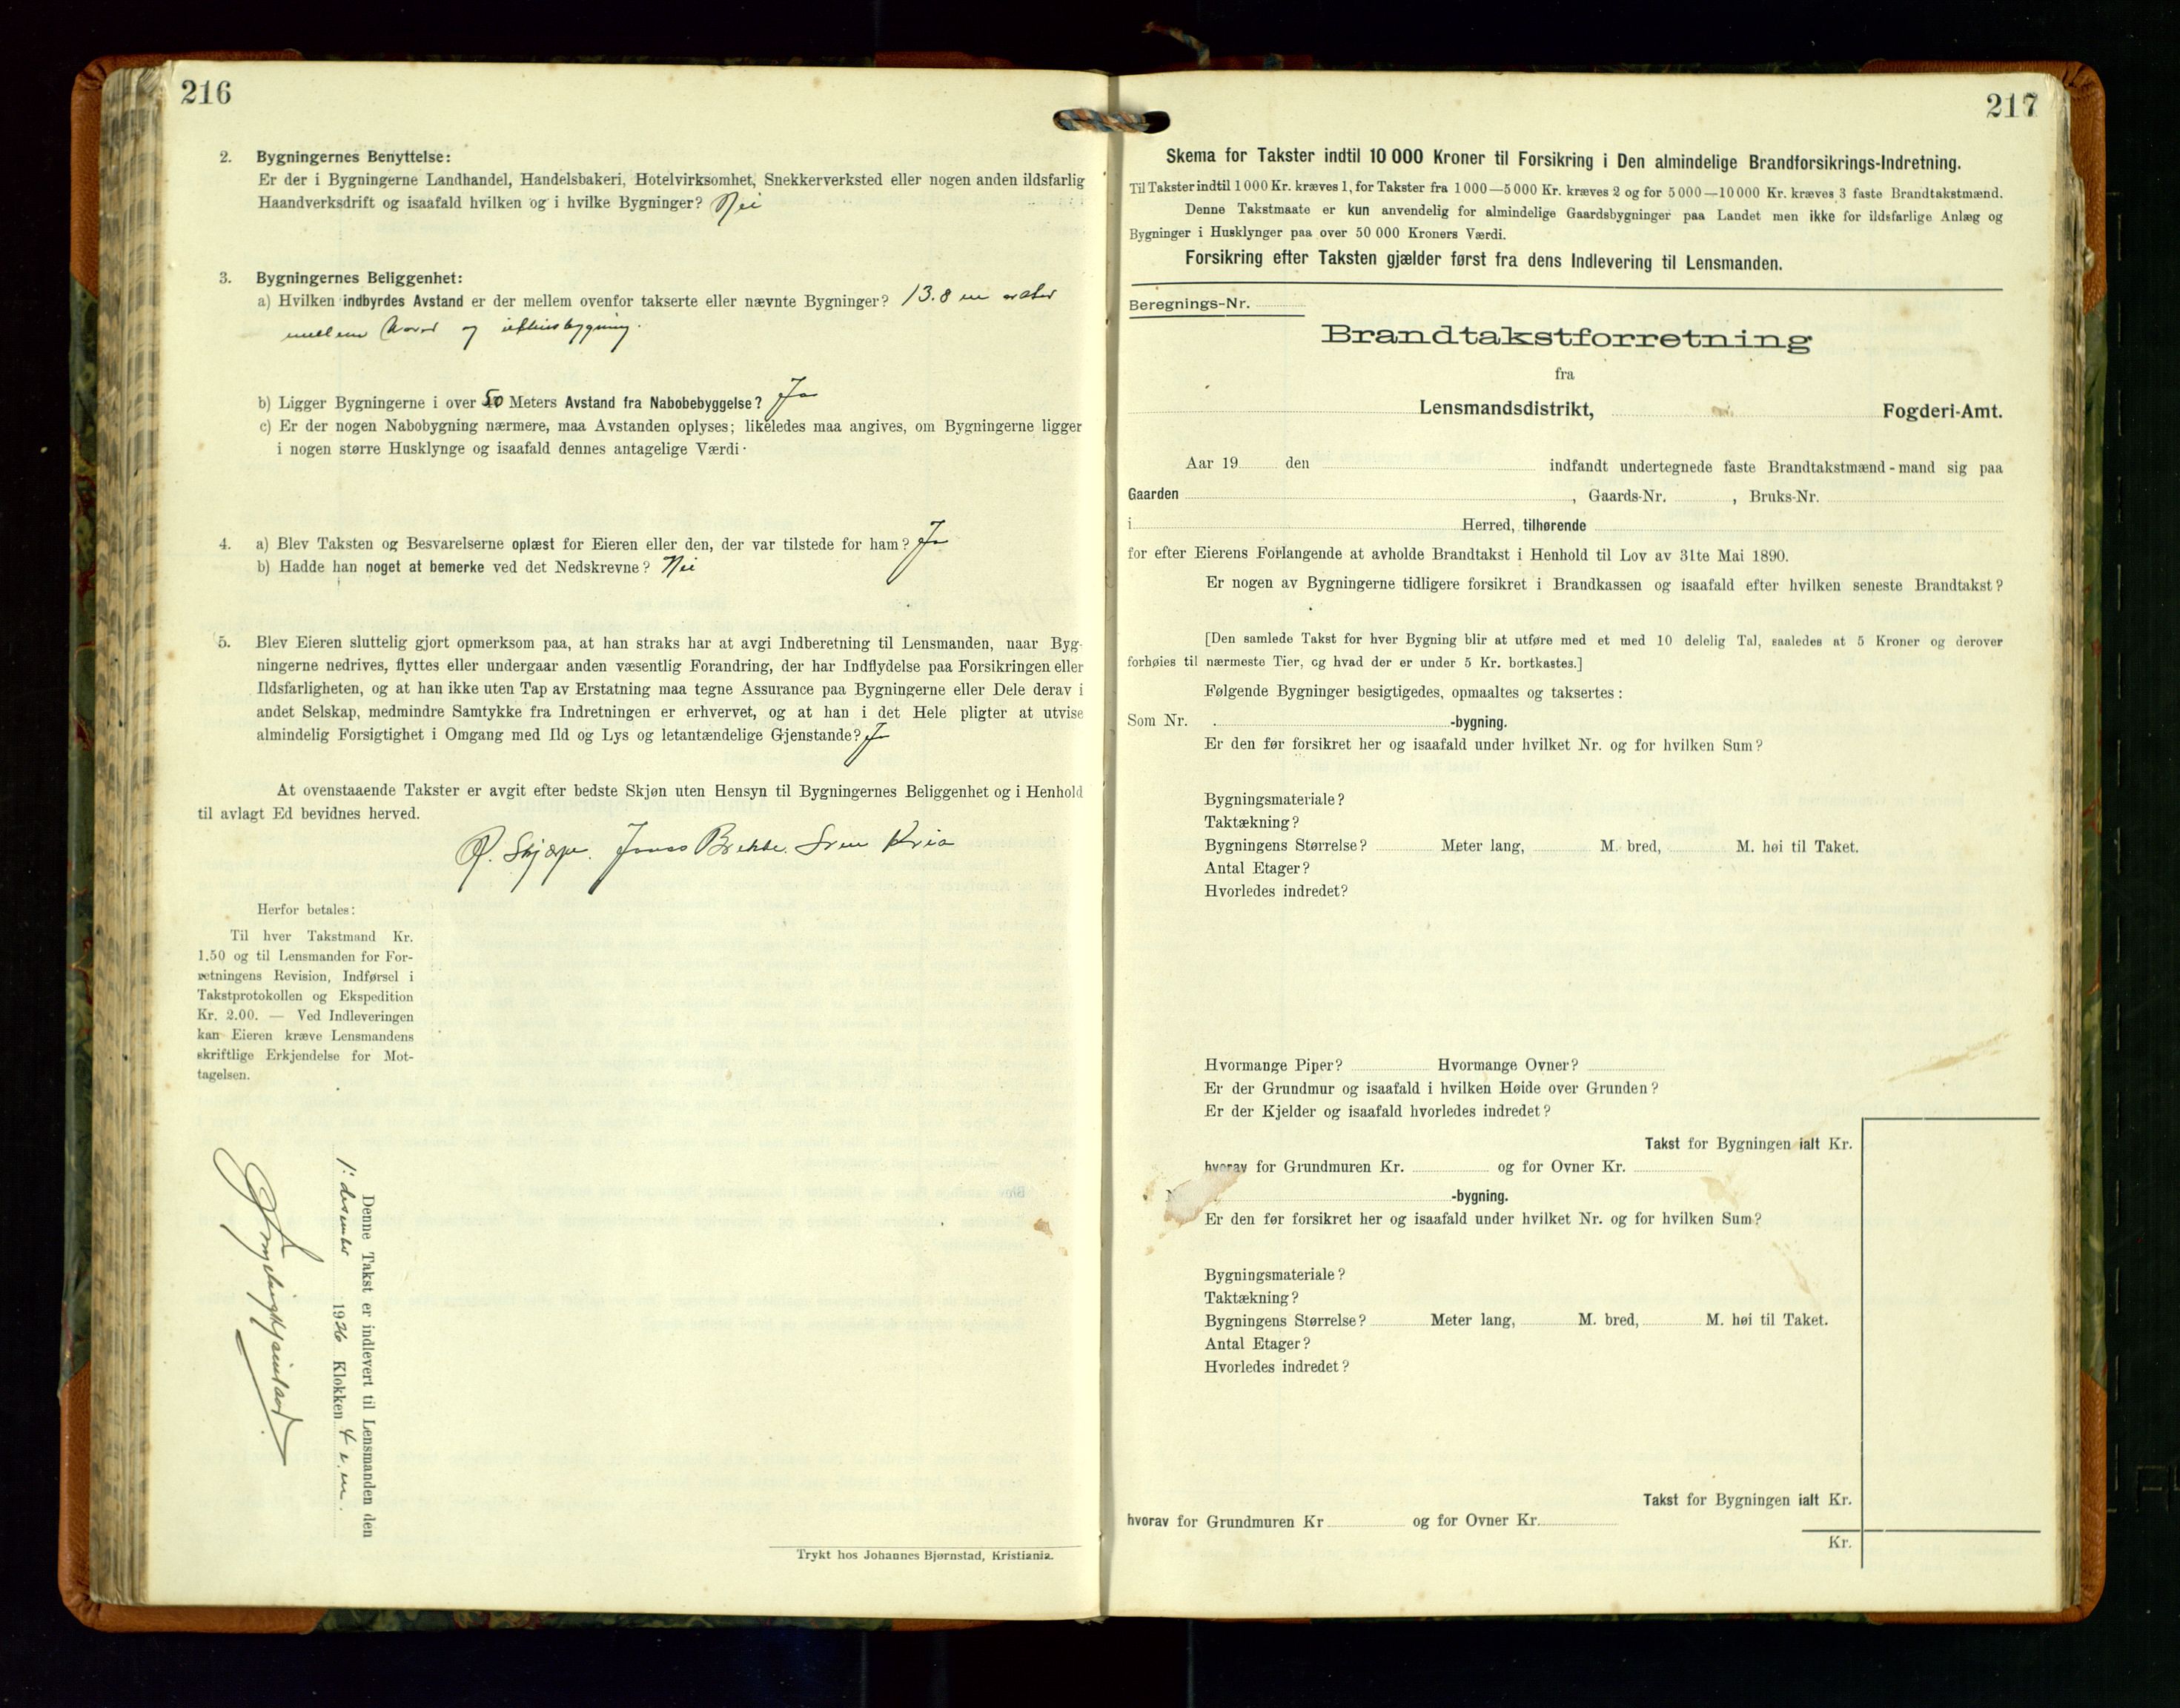 216
2. Bygningernes Benyttelse:
Er der i Bygningerne Landhandel, Handelsbakeri, Hotelvirksomhet, Snekkerverksted eller nogen anden ildsfarlig
Haandverksdrift og isaafald hvilken og i hvilke Bygninger? Nei
3. Bygningernes Beliggenhet:
a) Hvilken indbyrdes Avstand er der mellem ovenfor takserte eller nævnte Bygninger? 13.8 m
mellem og
b) Ligger Bygningerne i over 50 Meters Avstand fra Nabobebyggelse? Ja
c) Er der nogen Nabobygning nærmere, maa Avstanden oplyses; likeledes maa angives, om Bygningerne ligger
i nogen større Husklynge og isaafald dennes antagelige Værdi.
4. a) Blev Taksten og Besvarelserne oplæst for Eieren eller den, der var tilstede for ham? Ja
b) Hadde han noget at bemerke ved det Nedskrevne? Nei
5. Blev Eieren sluttelig gjort opmerksom paa, at han straks har at avgi Indberetning til Lensmanden, naar Byg-
ningerne nedrives, flyttes eller undergaar anden væsentlig Forandring, der har Indflydelse paa Forsikringen eller
Ildsfarligheten, og at han ikke uten Tap av Erstatning maa tegne Assurance paa Bygningerne eller Dele derav i
andet Selskap, medmindre Samtykke fra Indretningen er erhvervet, og at han i det Hele pligter at utvise
almindelig Forsigtighet i Omgang med Ild og Lys og letantændelige Gjenstande? Ja
At ovenstaaende Takster er avgit efter bedste Skjøn uten Hensyn til Bygningernes Beliggenhet og i Henhold
til avlagt Ed bevidnes herved.
Jonas Brekke. Sven
Herfor betales:
Til hver Takstmand Kr.
1.50 og til Lensmanden for For-
retningens Revision, Indførsel i
Takstprotokollen og Ekspedition
Kr. 2.00. — Ved Indleveringen
kan Eieren kræve Lensmandens
skriftlige Erkjendelse for Mot-
tagelsen.
Denne Takst er indlevert til Lensmanden den
1. desember 1926 Klokken 4 e.m.
Trykt hos Johannes Bjørnstad, Kristiania.
217
Skema for Takster indtil 10 000 Kroner til Forsikring i Den almindelige Brandforsikrings-Indretning.
Til Takster indtil 1 000 Kr. kræves 1, for Takster fra 1 000—5 000 Kr. kræves 2 og for 5 000—10 000 Kr. kræves 3 faste Brandtakstmænd.
Denne Takstmaate er kun anvendelig for almindelige Gaardsbygninger paa Landet men ikke for ildsfarlige Anlæg og
Bygninger i Husklynger paa over 50 000 Kroners Værdi.
Forsikring efter Taksten gjælder først fra dens Indlevering til Lensmanden.
Beregnings-Nr.
Brandtakstforretning
fra
Lensmandsdistrikt, Fogderi-Amt.
Aar 19 den indfandt undertegnede faste Brandtakstmænd-mand sig paa
Gaarden , Gaards-Nr. , Bruks-Nr.
i Herred, tilhørende
for efter Eierens Forlangende at avholde Brandtakst i Henhold til Lov av 31te Mai 1890.
Er nogen av Bygningerne tidligere forsikret i Brandkassen og isaafald efter hvilken seneste Brandtakst?
[Den samlede Takst for hver Bygning blir at utføre med et med 10 delelig Tal, saaledes at 5 Kroner og derover
forhøies til nærmeste Tier, og hvad der er under 5 Kr. bortkastes.]
Følgende Bygninger besigtigedes, opmaaltes og taksertes:
Som Nr. -bygning.
Er den før forsikret her og isaafald under hvilket Nr. og for hvilken Sum?
Bygningsmateriale?
Taktækning?
Bygningens Størrelse? Meter lang, M. bred, M. høi til Taket.
Antal Etager?
Hvorledes indredet?
Hvormange Piper? Hvormange Ovner?
Er der Grundmur og isaafald i hvilken Høide over Grunden?
Er der Kjelder og isaafald hvorledes indredet?
Takst for Bygningen ialt Kr.
hvorav for Grundmuren Kr. og for Ovner Kr.
-bygning.
Er den før forsikret her og isaafald under hvilket Nr. og for hvilken Sum?
Bygningsmateriale?
Taktækning?
Bygningens Størrelse? Meter lang, M. bred, M. høi til Taket.
Antal Etager?
Hvorledes indredet?
Takst for Bygningen ialt Kr.
hvorav for Grundmuren Kr og for Ovner Kr.
Kr.